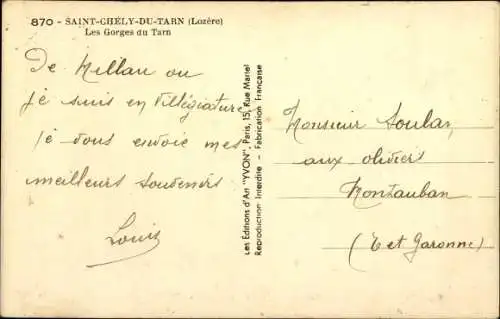 870 - SAINT-CHÉLY-DU-TARN (Lozère)
Les Gorges du Tarn
De Millau ou
je suis en Villégiature
je vous envoie mes
meilleurs Souvenirs
Louis
Les Editions d'Art "YVON", Paris, 15, Rue Martel
Reproduction Interdite - Fabrication Française
Monsieur Soulan
aux oliviers
Montauban
(T et Garonne)